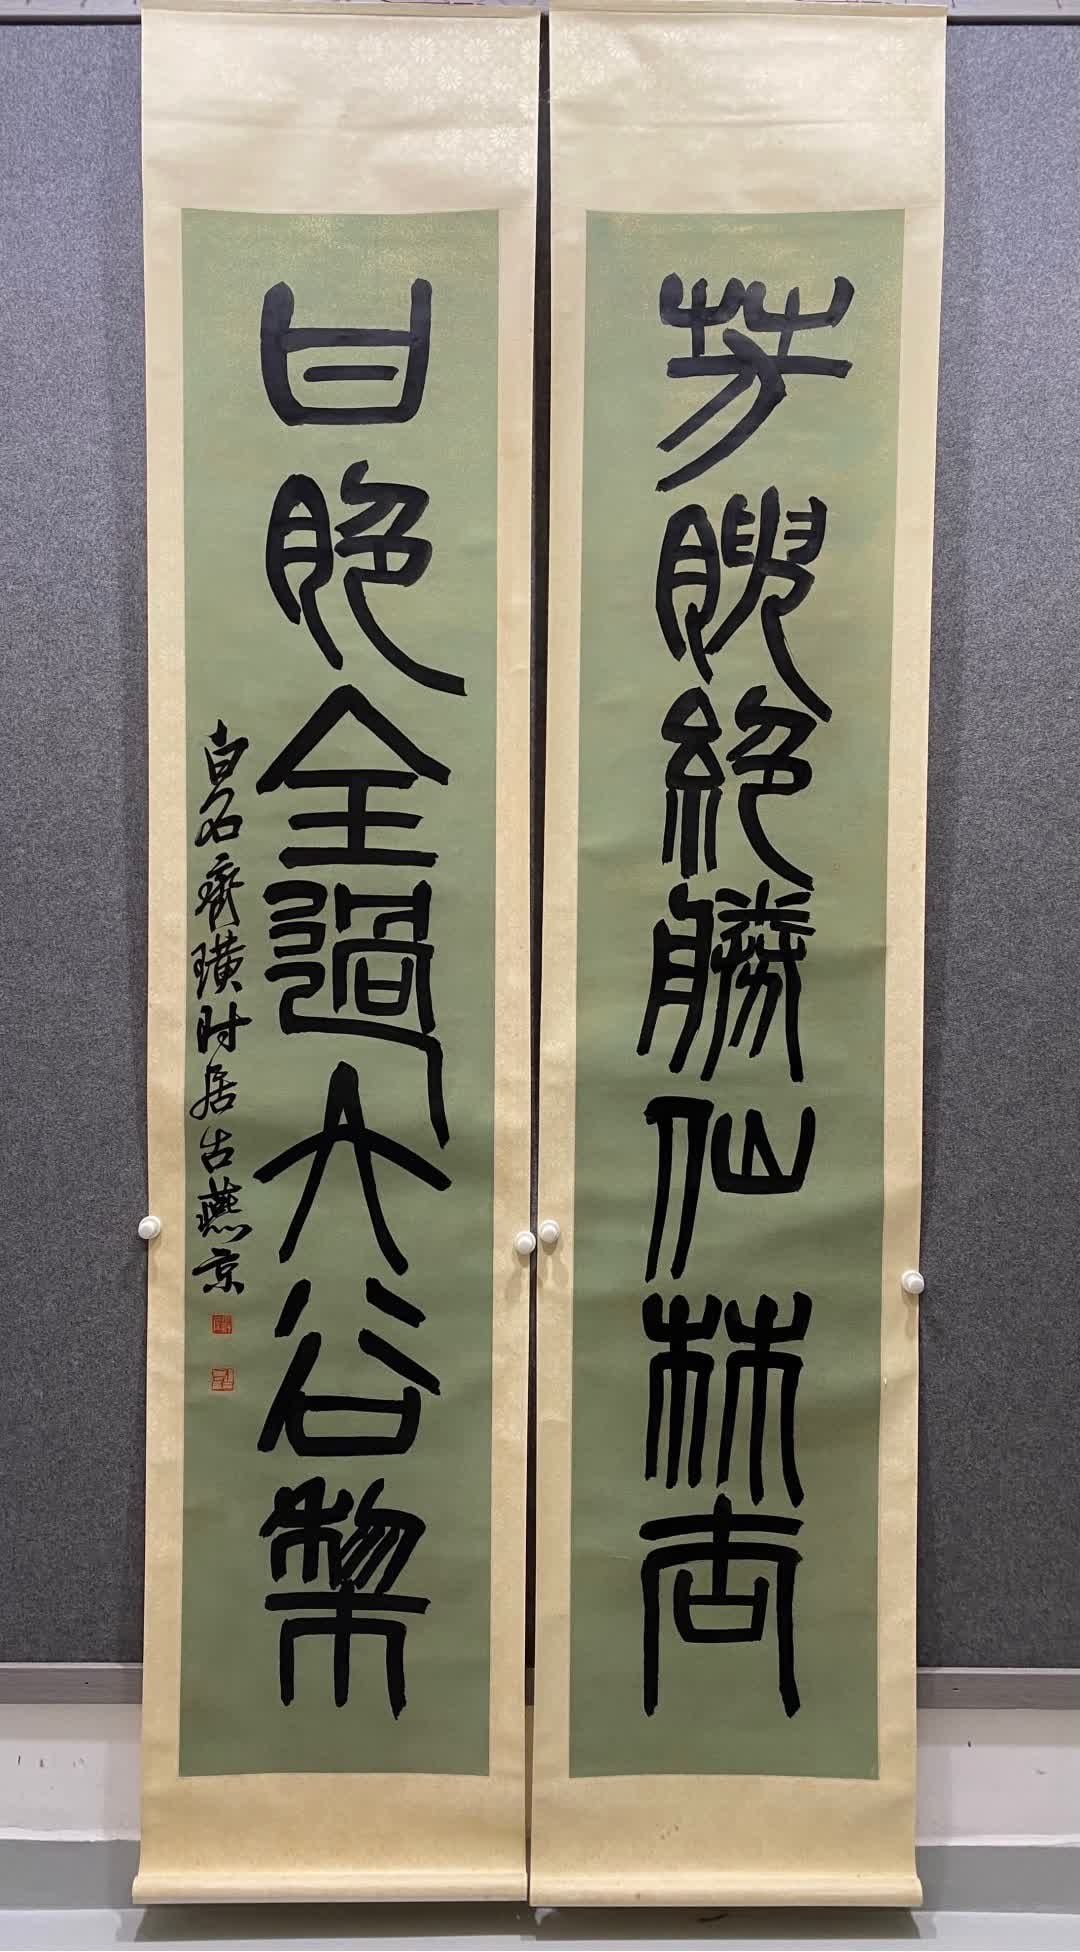 芳腴絕勝仙林杏
甘脆全過大谷棃
白石齊璜時居古燕京